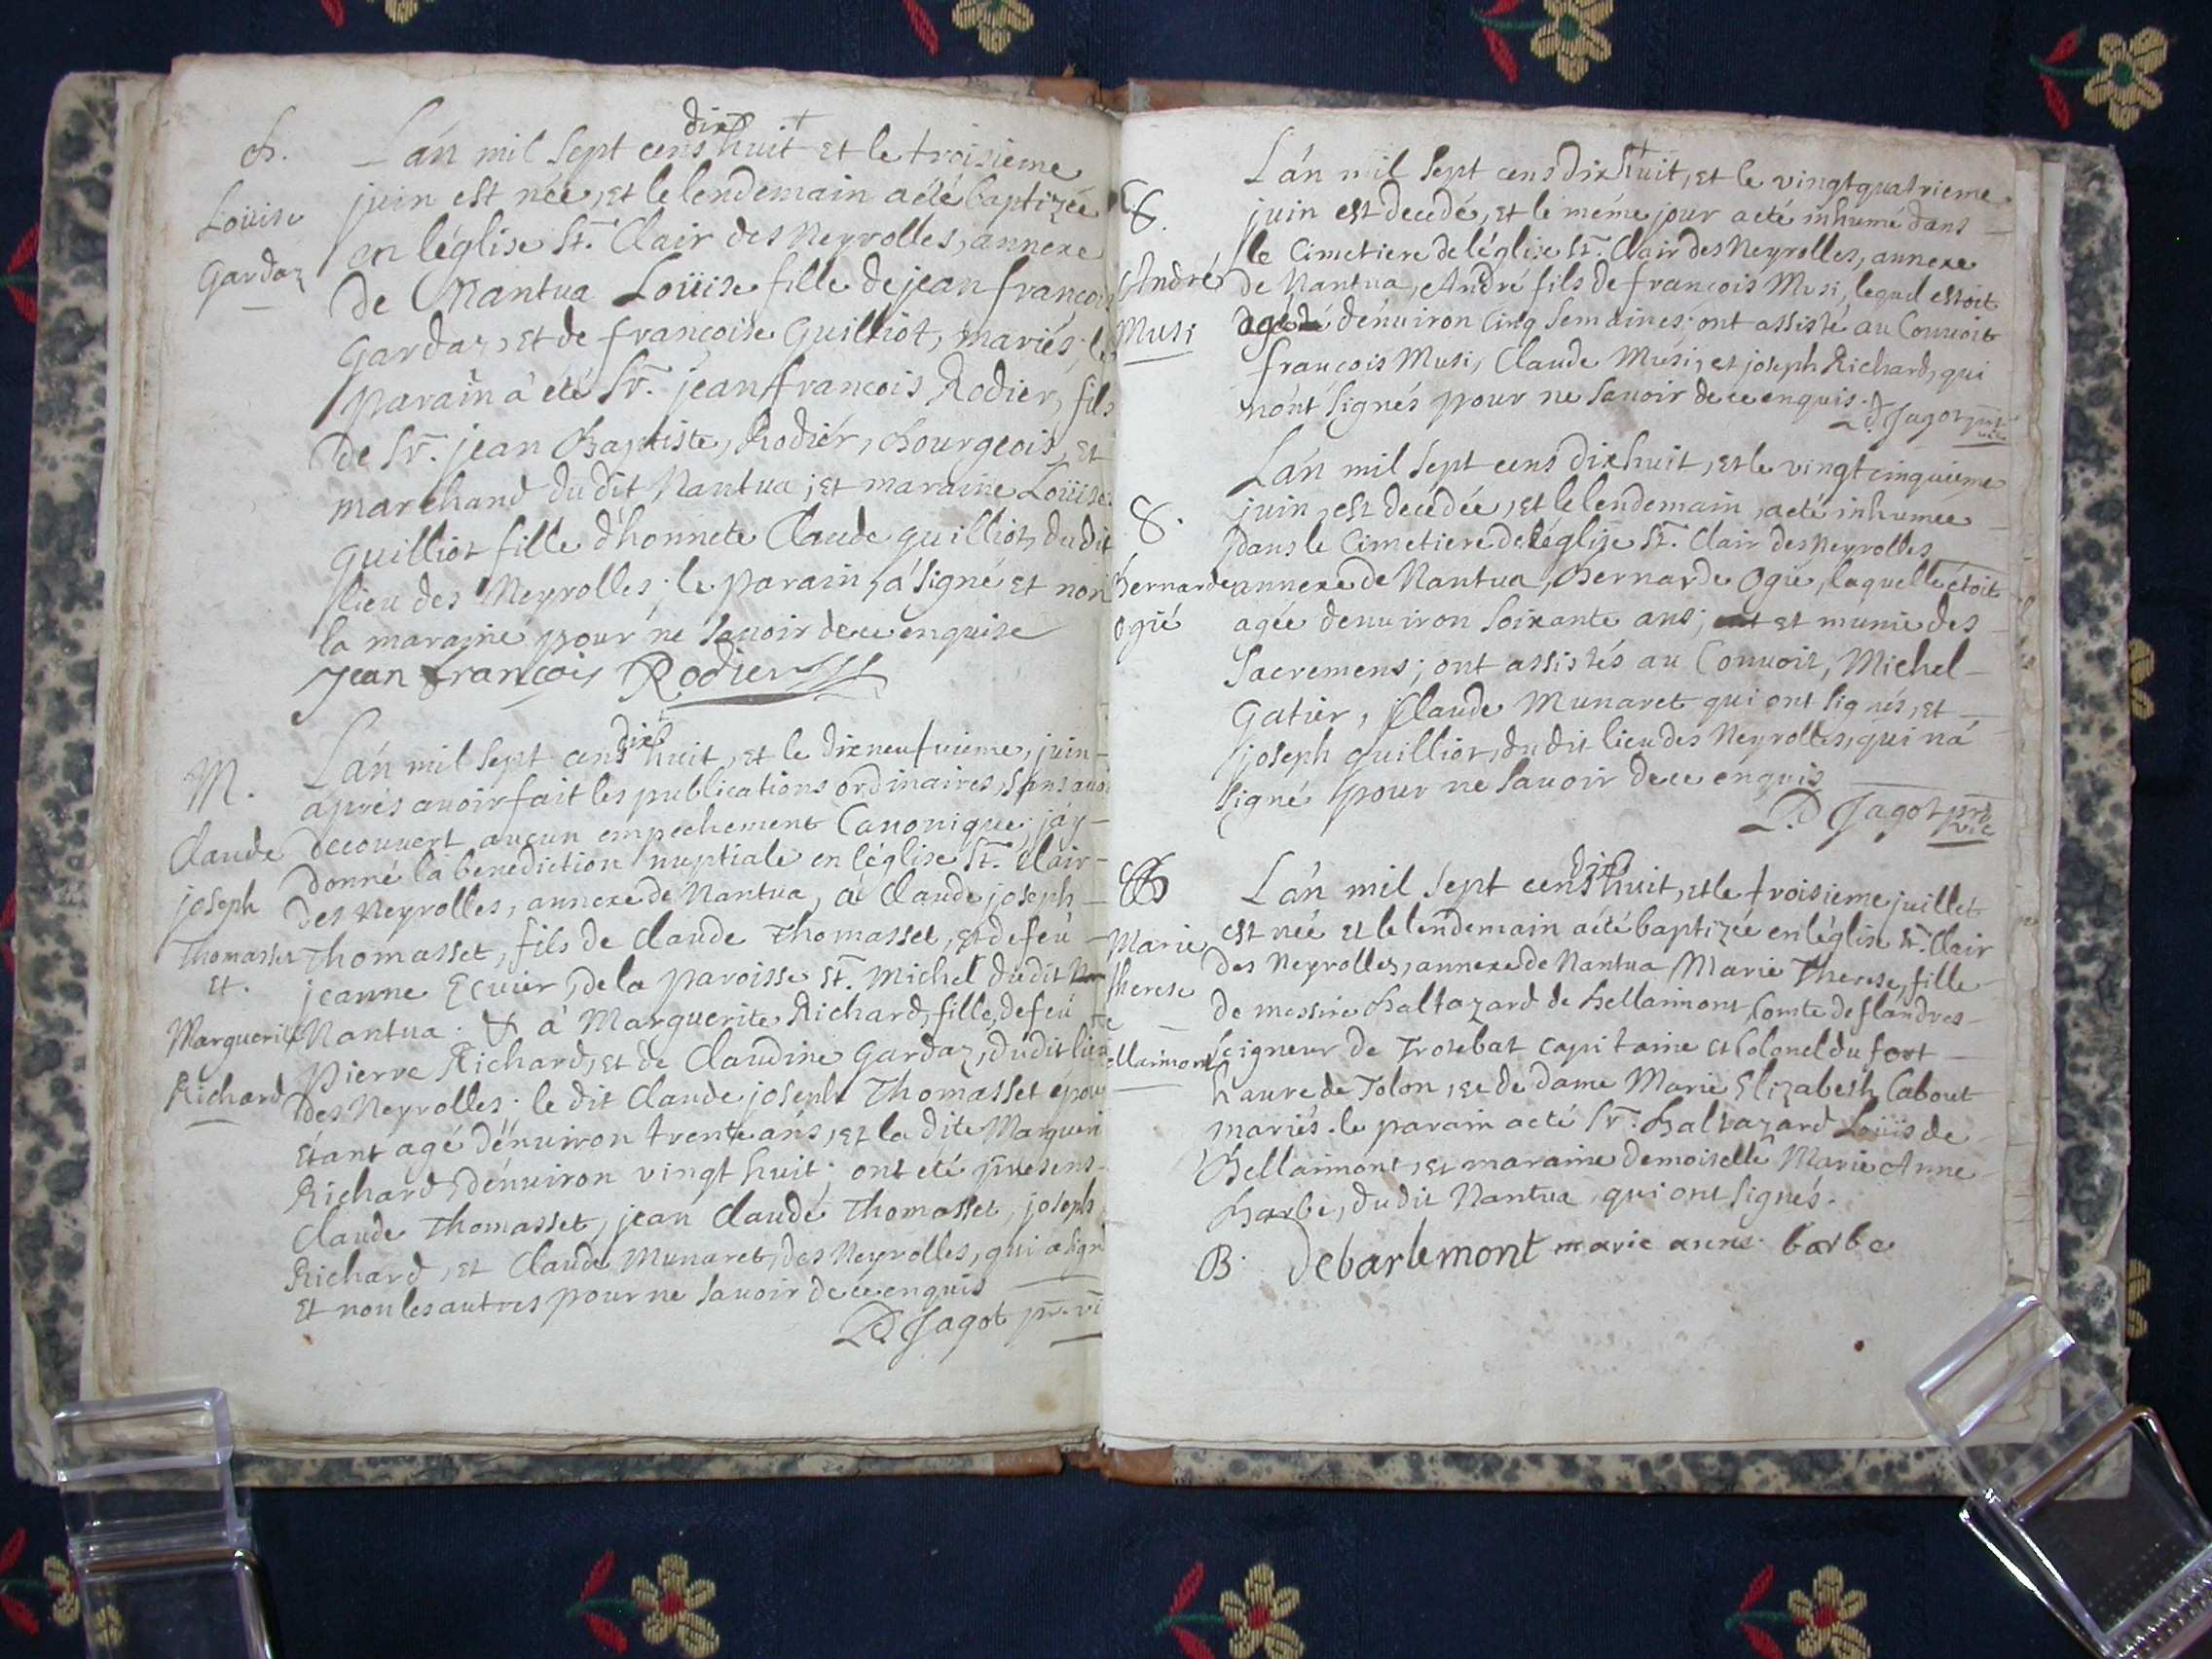 B.
Loüise
Gardaz
L'an mil sept cens dix huit et le troisieme
juin est née, et le lendemain a été baptizée
en l'église St. Clair des Neyrolles, annexe
de Nantua Loüise fille de jean françois
Gardaz, et de françoise Guilliot, mariés; le
parain a été Sr. jean françois Rodier, fils
de Sr. jean Baptiste, Rodier, Bourgeois, et
marchand du dit Nantua; et maraine Loüise
Guilliot fille d'honnete Claude Guilliot, du dit
lieu des Neyrolles; le parain, a signé et non
la maraine pour ne savoir de ce enquise
Jean françois Rodier
M.
Claude
joseph
Thomasset
Et.
Marguerite
Richard
L'an mil sept cens dix huit, et le dixneufvieme, juin
aprés avoir fait les publications ordinaires, sans avoir
decouvert aucun empechement Canonique; j'ay
donné la benediction nuptiale en l'église St. Clair
des Neyrolles, annexe de Nantua, à Claude joseph
Thomasset, fils de Claude Thomasset, et de feu
jeanne Ecuier, de la paroisse St. Michel du dit
Nantua. & à Marguerite Richard, fille, de feu
Pierre Richard, et de Claudine Gardaz, du dit lieu
des Neyrolles; le dit Claude joseph Thomasset époux
étant agé d'environ trente ans, et la dite Margueri
Richard, d'environ vingt huit; ont eté presens
Claude Thomasset, jean Claude Thomasset, joseph
Richard, et Claude Munaret, des Neyrolles, qui a signé
et non les autres pour ne savoir de ce enquis
D. Jagot pr. vi
S.
André
Musi
L'an mil sept cens dix huit, et le vingtquatrieme
juin est decedé, et le méme jour a eté inhumé dans
le Cimetiere de l'église St. Clair des Neyrolles, annexe
de Nantua, André fils de francois Musi, lequel estoit
agé d'environ cinq semaines; ont assisté au Convoit
francois Musi, Claude Musi, et joseph Richard, qui
n'ont signés pour ne savoir de ce enquis.
D. Jagot prt vic
S.
Bernarde
Ogié
L'an mil sept cens dix huit, et le vingtcinquieme
juin, est decedée, et le lendemain, a eté inhumee
dans le Cimetiere de l'église St. Clair des Neyrolles
annexe de Nantua, Bernarde Ogié, laquelle étoit
agée d'environ soixante ans; et munie des
Sacremens; ont assistés au Convoit, Michel
Gatier, Claude Munaret qui ont signés, et
joseph Guilliot, du dit lieu des Neyrolles, qui n'a
signé pour ne savoir de ce enquis
D. Jagot prt vic
B
Marie
therese
ellaimont
L'an mil sept cens dix huit, et le troisieme juillet
est née et le lendemain a été baptizée en l'église St. Clair
des Neyrolles, annexe de Nantua Marie Therese, fille
de messire Baltazard de Bellaimont, Comte de flandres
seigneur de Trotebat capitaine et Colonel du fort
h'aure de Tolon, et de dame Marie Elizabeth Cabout
mariés. le parain a eté Sr. Baltazard Loüis de
Bellaimont, et maraine demoiselle Marie Anne
Barbe, du dit Nantua, qui ont signés.
B. debarlemont marie anne barbe